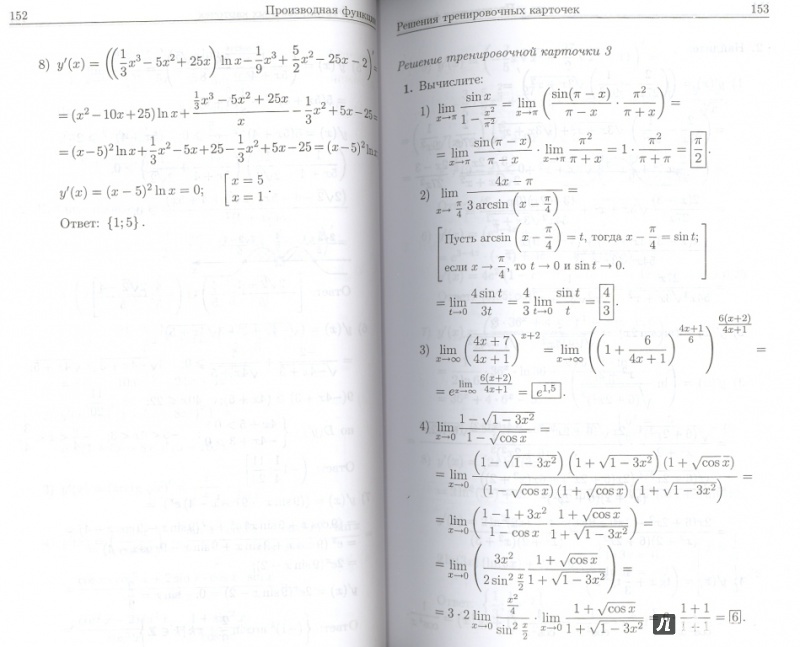 152
Производная функции
8) y′(x) = ((1/3 x³ − 5x² + 25x) ln x − 1/9 x³ + 5/2 x² − 25x − 2)′ =
= (x² − 10x + 25) ln x + (1/3 x³ − 5x² + 25x)/x − 1/3 x² + 5x − 25 =
= (x−5)² ln x + 1/3 x² − 5x + 25 − 1/3 x² + 5x − 25 = (x−5)² ln x
y′(x) = (x − 5)² ln x = 0; [x = 5 x = 1.
Ответ: {1; 5}.
Решения тренировочных карточек
153
Решение тренировочной карточки 3
1. Вычислите:
1) lim_{x→π} sin x/(1 − x²/π²) = lim_{x→π} (sin(π − x)/(π − x) · π²/(π + x)) =
= lim_{x→π} sin(π − x)/(π − x) · lim_{x→π} π²/(π + x) = 1 · π²/(π + π) = π/2.
2) lim_{x→π/4} (4x − π)/(3 arcsin(x − π/4)) =
[Пусть arcsin(x − π/4) = t, тогда x − π/4 = sin t;
если x → π/4, то t → 0 и sin t → 0.]
= lim_{t→0} 4 sin t/3t = 4/3 lim_{t→0} sin t/t = 4/3.
3) lim_{x→∞} ((4x + 7)/(4x + 1))^{x+2} = lim_{x→∞} ((1 + 6/(4x + 1))^{(4x+1)/6})^{6(x+2)/(4x+1)} =
= e^{lim_{x→∞} 6(x+2)/(4x+1)} = e^{1,5}.
4) lim_{x→0} (1 − √(1 − 3x²))/(1 − √(cos x)) =
= lim_{x→0} (1 − √(1 − 3x²))(1 + √(1 − 3x²))(1 + √(cos x))/((1 − √(cos x))(1 + √(cos x))(1 + √(1 − 3x²))) =
= lim_{x→0} ((1 − 1 + 3x²)/(1 − cos x) · (1 + √(cos x))/(1 + √(1 − 3x²))) =
= lim_{x→0} (3x²/(2 sin² x/2) · (1 + √(cos x))/(1 + √(1 − 3x²))) =
= 3 · 2 lim_{x→0} (x²/4)/(sin² x/2) · lim_{x→0} (1 + √(cos x))/(1 + √(1 − 3x²)) = (1 + 1)/(1 + 1) = 6.